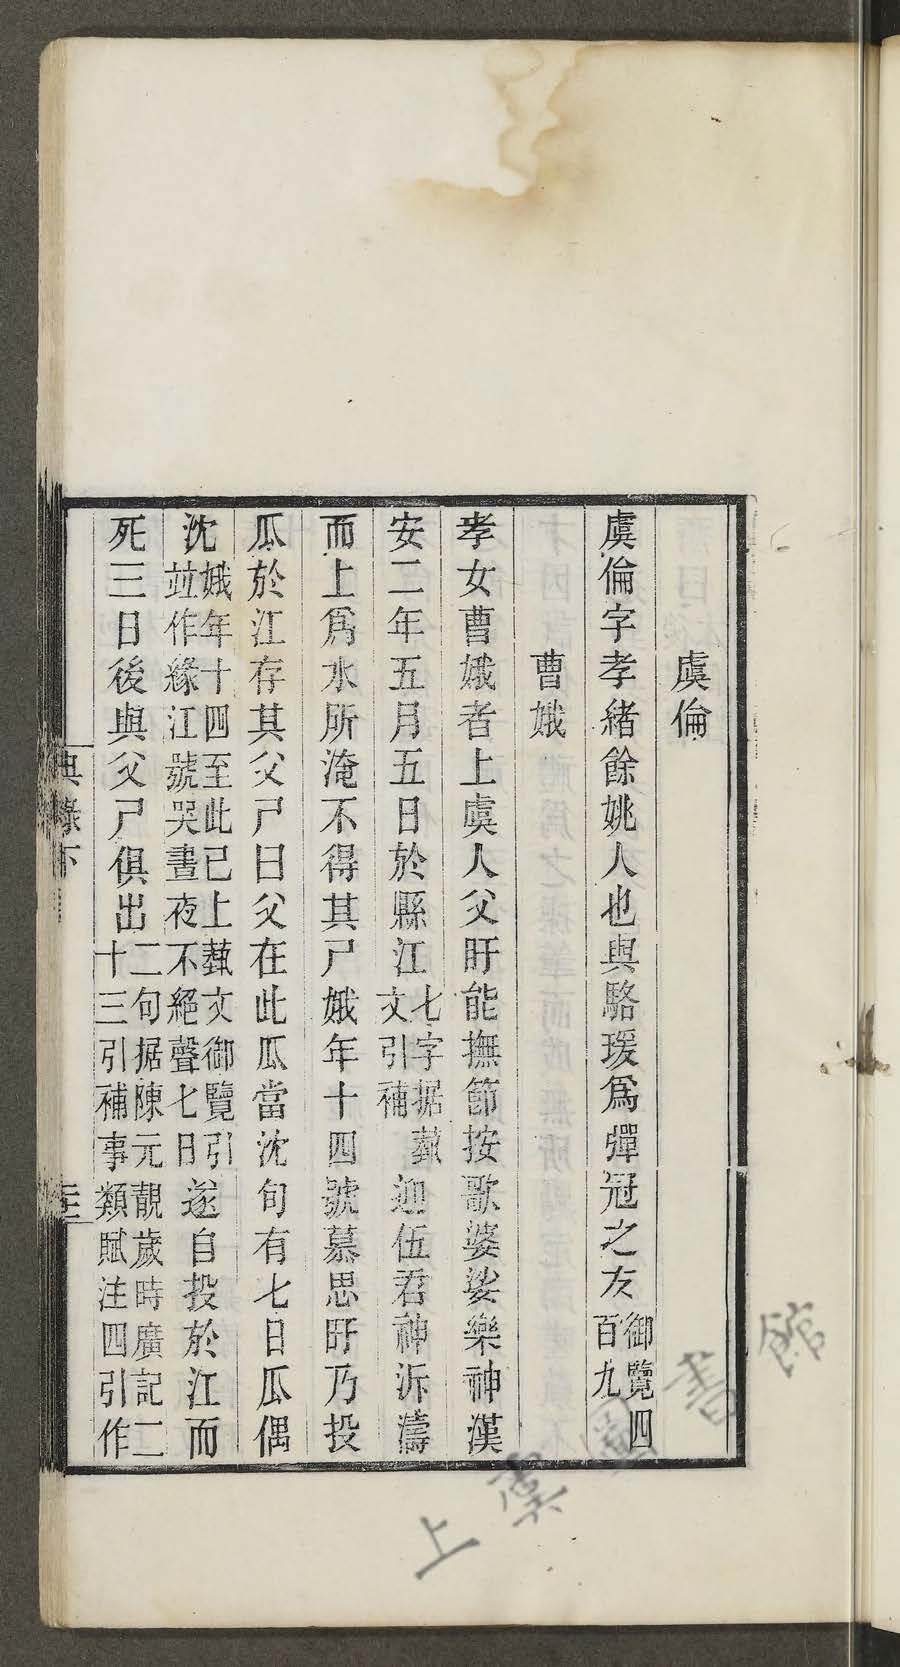 虞倫
虞倫字孝緒餘姚人也與駱瑗爲彈冠之友御覽四百九
曹娥
孝女曹娥者上虞人父盱能撫節按歌婆娑樂神漢
安二年五月五日於縣江七字据蓺文引補迎伍君神泝濤
而上爲水所淹不得其尸娥年十四號慕思盱乃投
瓜於江存其父尸曰父在此瓜當沈旬有七日瓜偶
沈娥年十四至此已上蓺文御覽引並作緣江號哭晝夜不絕聲七日遂自投於江而
死三日後與父尸俱出二句据陳元靚歲時廣記二十三引補事類賦注四引作
典錄下
上虞圖書館